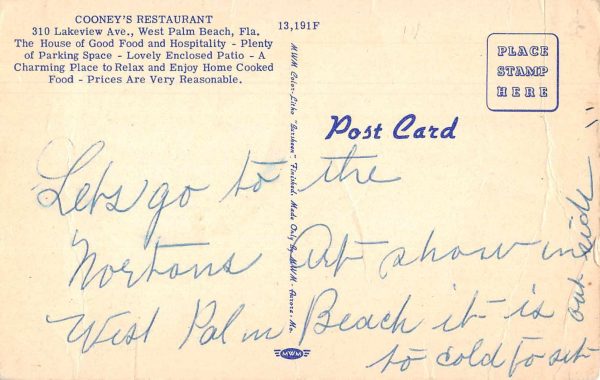 COONEY'S RESTAURANT
310 Lakeview Ave., West Palm Beach, Fla.
The House of Good Food and Hospitality - Plenty
of Parking Space - Lovely Enclosed Patio - A
Charming Place to Relax and Enjoy Home Cooked
Food - Prices Are Very Reasonable.
13,191F
MWM Color-Litho "Sursheen" Finished. Made Only By MWM - Aurora, Mo.
PLACE
STAMP
HERE
Post Card
Lets go to the
Nortons Art show in
West Palm Beach it is
to cold to set
out side
MWM